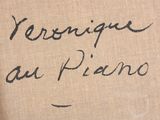 Veronique
au Piano